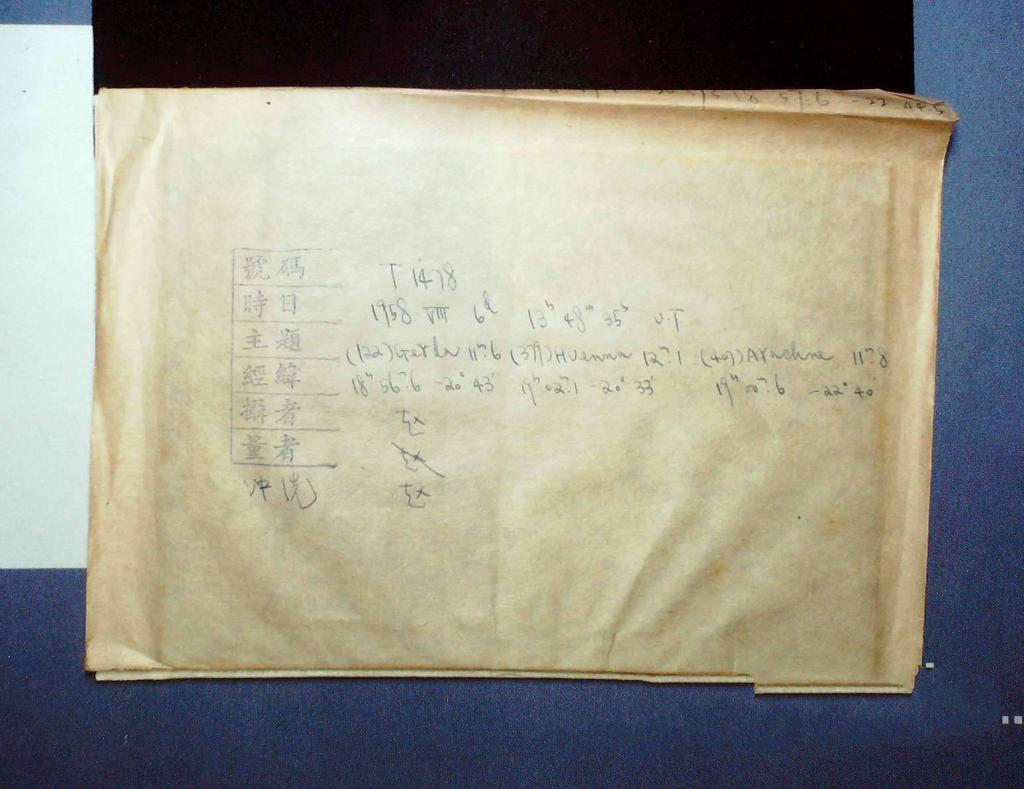 號碼 T 1478
時日 1958 VIII 6ᵈ 13ʰ 48ᵐ 35ˢ U.T
主題 (122) Gerda 11ᵐ.6 (379) Huenna 12ᵐ.1 (407) Arachne 11ᵐ.8
經緯 18ʰ 56ᵐ.6 -20° 43' 19ʰ 02ᵐ.1 -20° 33' 19ʰ 00ᵐ.6 -22° 40'
攝者 赵
量者 赵
冲洗 赵